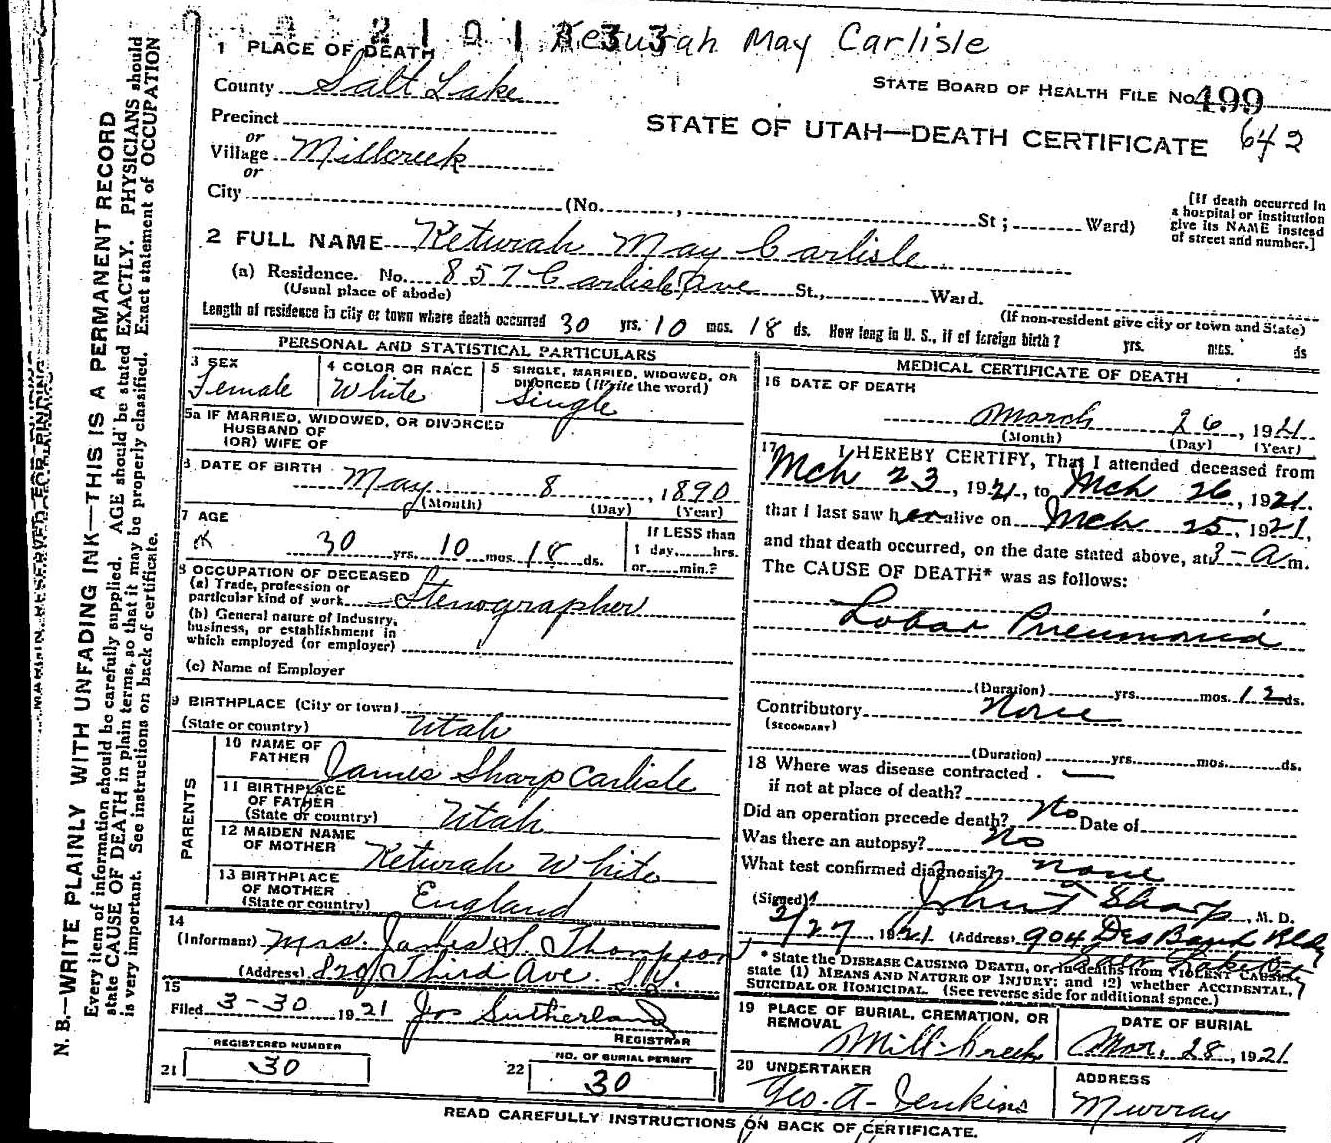 2 1 0 1 3 3 3 Keturah May Carlisle
1 PLACE OF DEATH
County Salt Lake
STATE BOARD OF HEALTH FILE No. 499
Precinct
STATE OF UTAH—DEATH CERTIFICATE 642
or
Village Millcreek
or
City (No. , St ; Ward)
[If death occurred in
a hospital or institution
give its NAME instead
of street and number.]
2 FULL NAME Keturah May Carlisle
(a) Residence. No. 857 Carlisle Ave St., Ward.
(Usual place of abode) (If non-resident give city or town and State)
Length of residence in city or town where death occurred 30 yrs. 10 mos. 18 ds. How long in U. S., if of foreign birth? yrs. mos. ds
PERSONAL AND STATISTICAL PARTICULARS
3 SEX
Female
4 COLOR OR RACE
White
5 SINGLE, MARRIED, WIDOWED, OR
DIVORCED (Write the word)
Single
5a IF MARRIED, WIDOWED, OR DIVORCED
HUSBAND OF
(OR) WIFE OF
6 DATE OF BIRTH May 8, 1890
(Month) (Day) (Year)
7 AGE
30 yrs. 10 mos. 18 ds.
If LESS than
1 day, hrs.
or min.?
8 OCCUPATION OF DECEASED
(a) Trade, profession or
particular kind of work Stenographer
(b) General nature of Industry,
business, or establishment in
which employed (or employer)
(c) Name of Employer
9 BIRTHPLACE (City or town)
(State or country) Utah
PARENTS
10 NAME OF
FATHER James Sharp Carlisle
11 BIRTHPLACE
OF FATHER
(State or country) Utah
12 MAIDEN NAME
OF MOTHER Keturah White
13 BIRTHPLACE
OF MOTHER
(State or country) England
14
(Informant) Mrs. James S. Thompson
(Address) 829 Third Ave. S.L.
15
Filed 3-30 1921 Jos Sutherland
REGISTRAR
REGISTERED NUMBER
21 30
NO. OF BURIAL PERMIT
22 30
MEDICAL CERTIFICATE OF DEATH
16 DATE OF DEATH
March 26, 1921
(Month) (Day) (Year)
17 I HEREBY CERTIFY, That I attended deceased from
Mch 23, 1921, to Mch 26, 1921
that I last saw her alive on Mch 25, 1921,
and that death occurred, on the date stated above, at 3-a m.
The CAUSE OF DEATH* was as follows:
Lobar Pneumonia
(Duration) yrs. mos. 12 ds.
Contributory None
(SECONDARY)
(Duration) yrs. mos. ds.
18 Where was disease contracted
if not at place of death?
Did an operation precede death? No Date of
Was there an autopsy? No
What test confirmed diagnosis? none
(Signed) John T Sharp, M. D.
3/27 1921 (Address) 904 Des Bank Bldg
Salt Lake City
* State the DISEASE CAUSING DEATH, or, in deaths from VIOLENT CAUSES,
state (1) MEANS AND NATURE OF INJURY; and (2) whether ACCIDENTAL,
SUICIDAL OR HOMICIDAL. (See reverse side for additional space.)
19 PLACE OF BURIAL, CREMATION, OR
REMOVAL
Mill-Kreek
DATE OF BURIAL
Mar. 28, 1921
20 UNDERTAKER
Geo. A. Jenkins
ADDRESS
Murray
READ CAREFULLY INSTRUCTIONS ON BACK OF CERTIFICATE.
MARGIN RESERVED FOR BINDING
N. B.—WRITE PLAINLY WITH UNFADING INK—THIS IS A PERMANENT RECORD
Every item of information should be carefully supplied. AGE should be stated EXACTLY. PHYSICIANS should
state CAUSE OF DEATH in plain terms, so that it may be properly classified. Exact statement of OCCUPATION
is very important. See instructions on back of certificate.